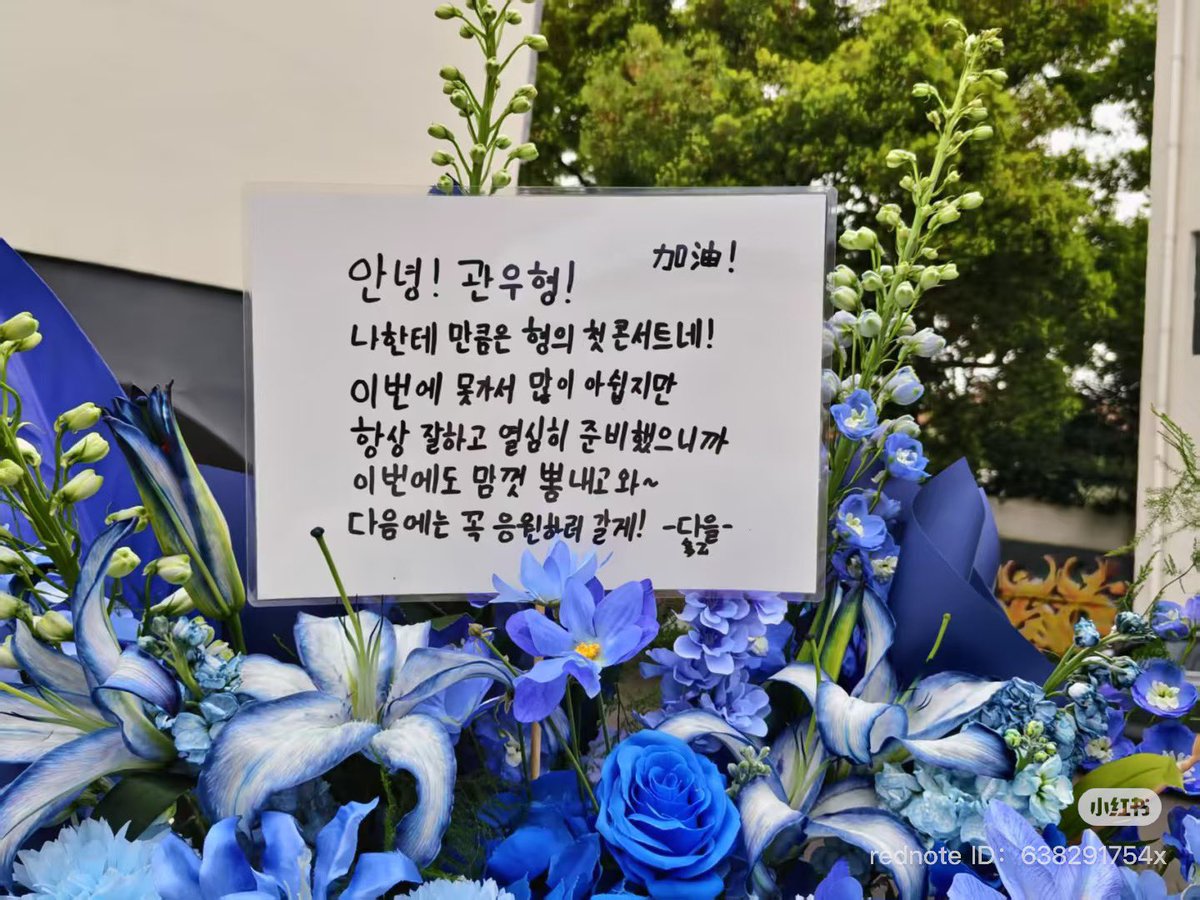 안녕! 관우형!
加油!
나한테 만큼은 형의 첫 콘서트네!
이번에 못가서 많이 아쉽지만
항상 잘하고 열심히 준비했으니까
이번에도 맘껏 뽐내고와~
다음에는 꼭 응원하러 갈게! -다을-
小红书
rednote ID: 638291754x